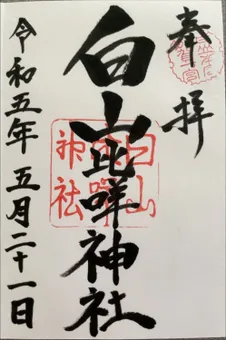 奉拝
白山比咩神社
白山
比咩
神社
令和五年五月二十一日